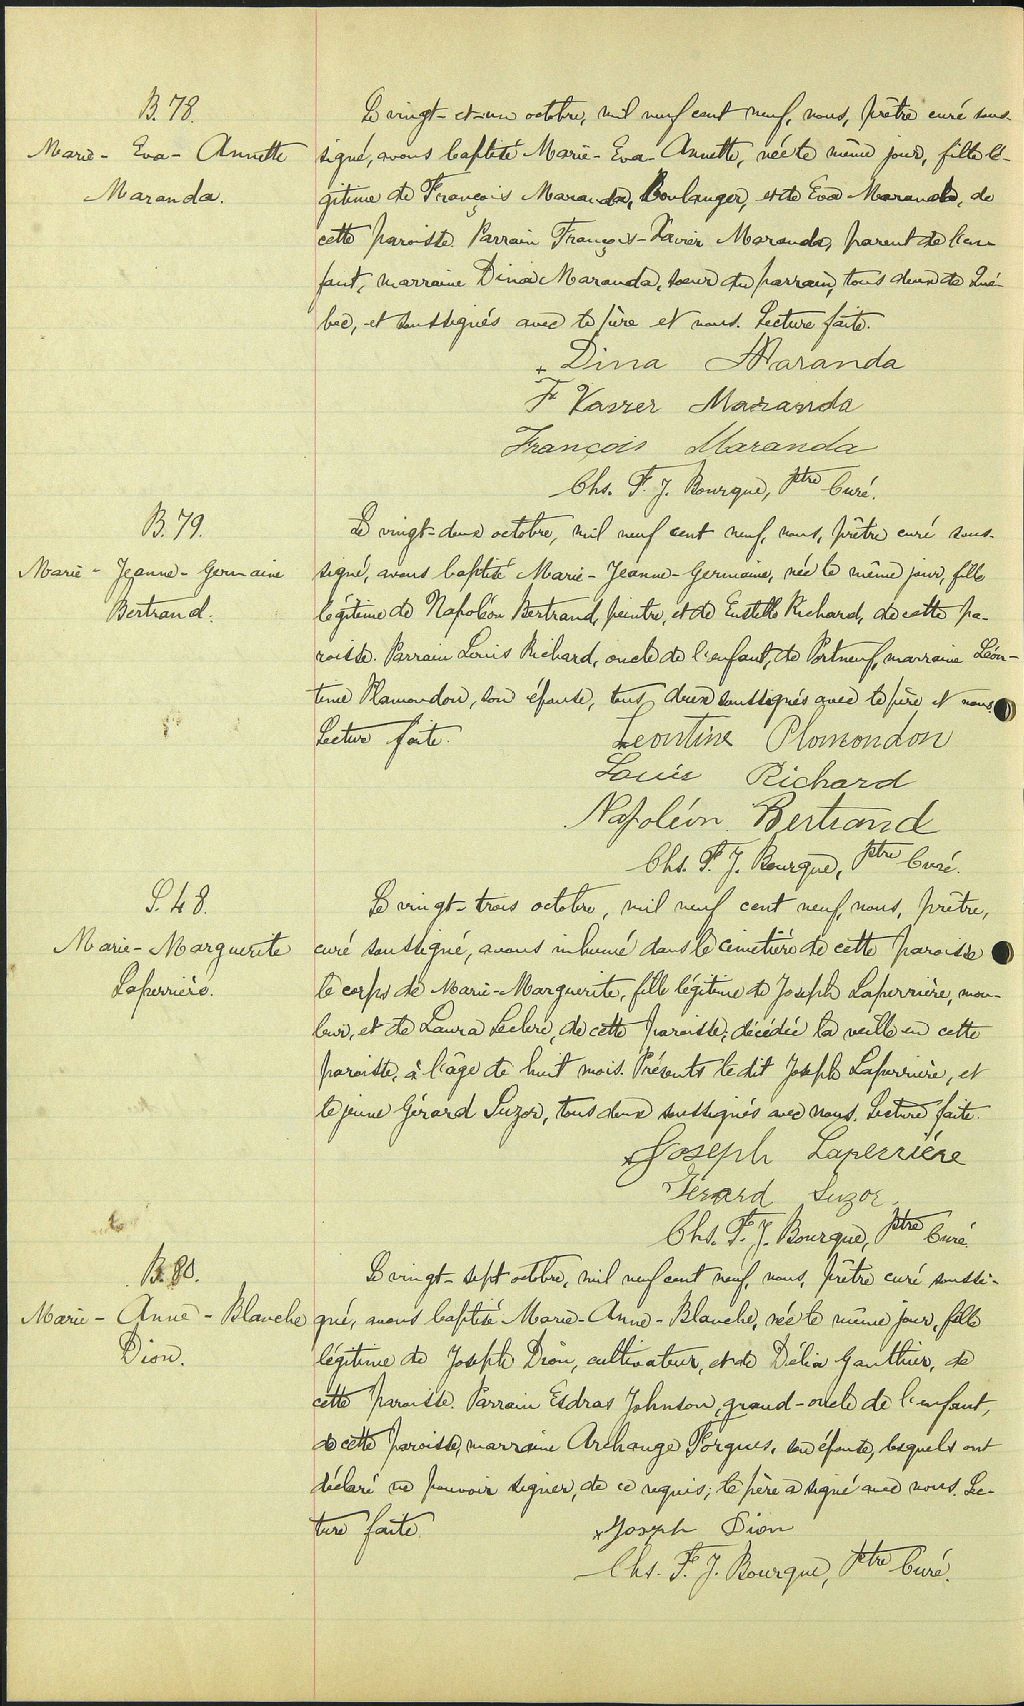 B. 78.
Marie - Eva - Annette
Maranda.
Le vingt-et-un octobre, mil neuf cent neuf, nous, prêtre curé sous-
signé, avons baptisé Marie-Eva-Annette, née le même jour, fille lé-
gitime de François Maranda, Boulanger, et de Eva Maranda, de
cette paroisse. Parrain François-Xavier Maranda, parent de l'en-
fant, marraine Dina Maranda, soeur du parrain, tous deux de Qué-
bec, et soussignés avec le père et nous. Lecture faite.
Dina Maranda
F Xavier Maranda
François Maranda
Chs. F. J. Bourque, Ptre Curé.
B. 79.
Marie - Jeanne - Germaine
Bertrand.
Le vingt-deux octobre, mil neuf cent neuf, nous, prêtre curé sous-
signé, avons baptisé Marie-Jeanne-Germaine, née le même jour, fille
légitime de Napoléon Bertrand, peintre, et de Eustelle Richard, de cette pa-
roisse. Parrain Louis Richard, oncle de l'enfant, de Portneuf, marraine Léon-
tine Plamondon, son épouse, tous deux soussignés avec le père et nous.
Lecture faite.
Leontine Plomondon
Louis Richard
Napoléon Bertrand
Chs. F. J. Bourque, Ptre Curé.
S. 48.
Marie-Marguerite
Laperrière.
Le vingt-trois octobre, mil neuf cent neuf, nous, prêtre,
curé soussigné, avons inhumé dans le cimetière de cette paroisse
le corps de Marie-Marguerite, fille légitime de Joseph Laperrière, mou-
leur, et de Laura Leclerc, de cette paroisse, décédée la veille en cette
paroisse, à l'âge de huit mois. Présents le dit Joseph Laperrière, et
le jeune Gérard Suzor, tous deux soussignés avec nous. Lecture faite.
Joseph Laperrière
Gerard Suzor
Chs. F. J. Bourque, Ptre Curé.
B. 80.
Marie - Anne - Blanche
Dion.
Le vingt-sept octobre, mil neuf cent neuf, nous, prêtre curé soussi-
gné, avons baptisé Marie-Anne-Blanche, née le même jour, fille
légitime de Joseph Dion, cultivateur, et de Délia Gauthier, de
cette paroisse. Parrain Esdras Johnson, grand-oncle de l'enfant,
de cette paroisse, marraine Archange Porgues, son épouse, lesquels ont
déclaré ne pouvoir signer, de ce requis; le père a signé avec nous. Lec-
ture faite.
Joseph Dion
Chs. F. J. Bourque, Ptre Curé.